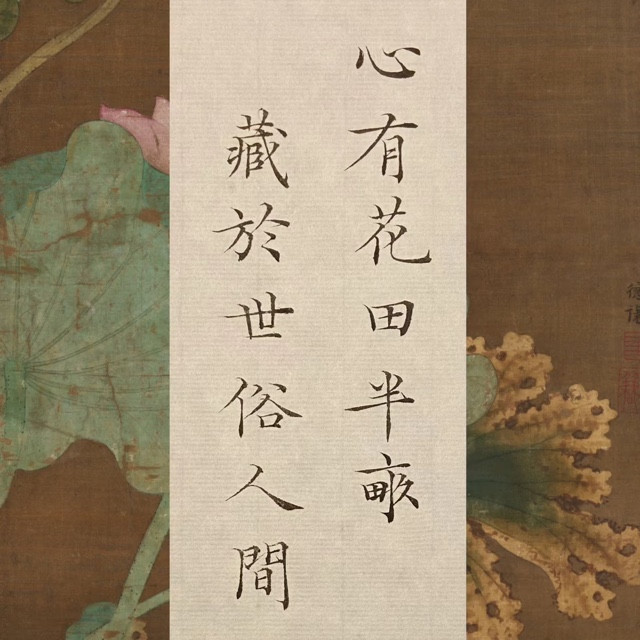 心有花田半畝
藏於世俗人間